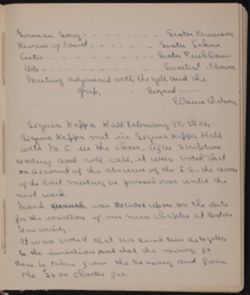 German Song - - - - - - Sister Kennison
Review of Faust - - - - - Sister Eakins
Critic - - - - - - Sister Pinkham
Adv. - - - - - Sister
Meeting adjourned with the yell and the
grip. Signed
Wilson
Sigma Kappa Hall February 17, 1904.
Sigma Kappa met in Sigma Kappa Hall
with M. C. in the chair. After scripture
reading and roll call, it was voted that
on account of the absence of the S. S., the report
of the last meeting be passed over until the
next week.
March was decided upon as the date
for the initiation of our new chapter at Boston
University.
It was voted that we send two delegates
to the initiation and that the money for
this be taken from the treasury and from
the 20.00 charter fee.